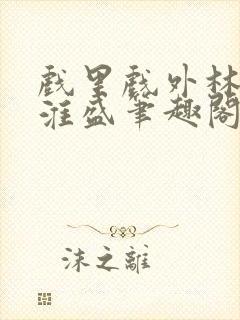 戲里戲外林
淮盛筆趣閣
沫之離